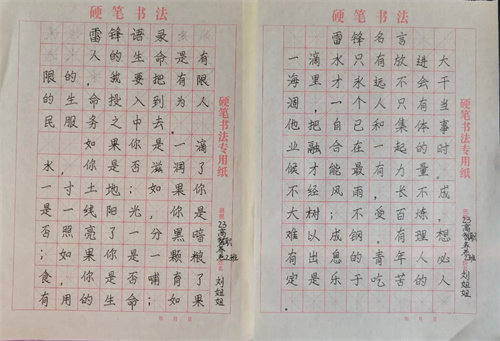 硬笔书法
雷锋语录
人的生命是有
限的，我要把有限
的生命投入到为人
民服务之中去。
如果你是一滴
水，你是否滋润了
一寸土地；如果你
是一线阳光，你是
否照亮了一分黑暗
；如果你是一颗粮
食，你是否哺育了
有用的生命；如果
硬笔书法专用纸
年 月 日
硬笔书法
雷锋名言
一滴水只有放进大
海里，才永远不会干
涸，一个人只有当
他把自己和集体事
业融合在一起的时
候才能最有力量。
不经风雨，长不成
大树；不受百炼，
难以成钢。有理想
有出息的青年人必
定是乐于吃苦的人
硬笔书法专用纸
年 月 日